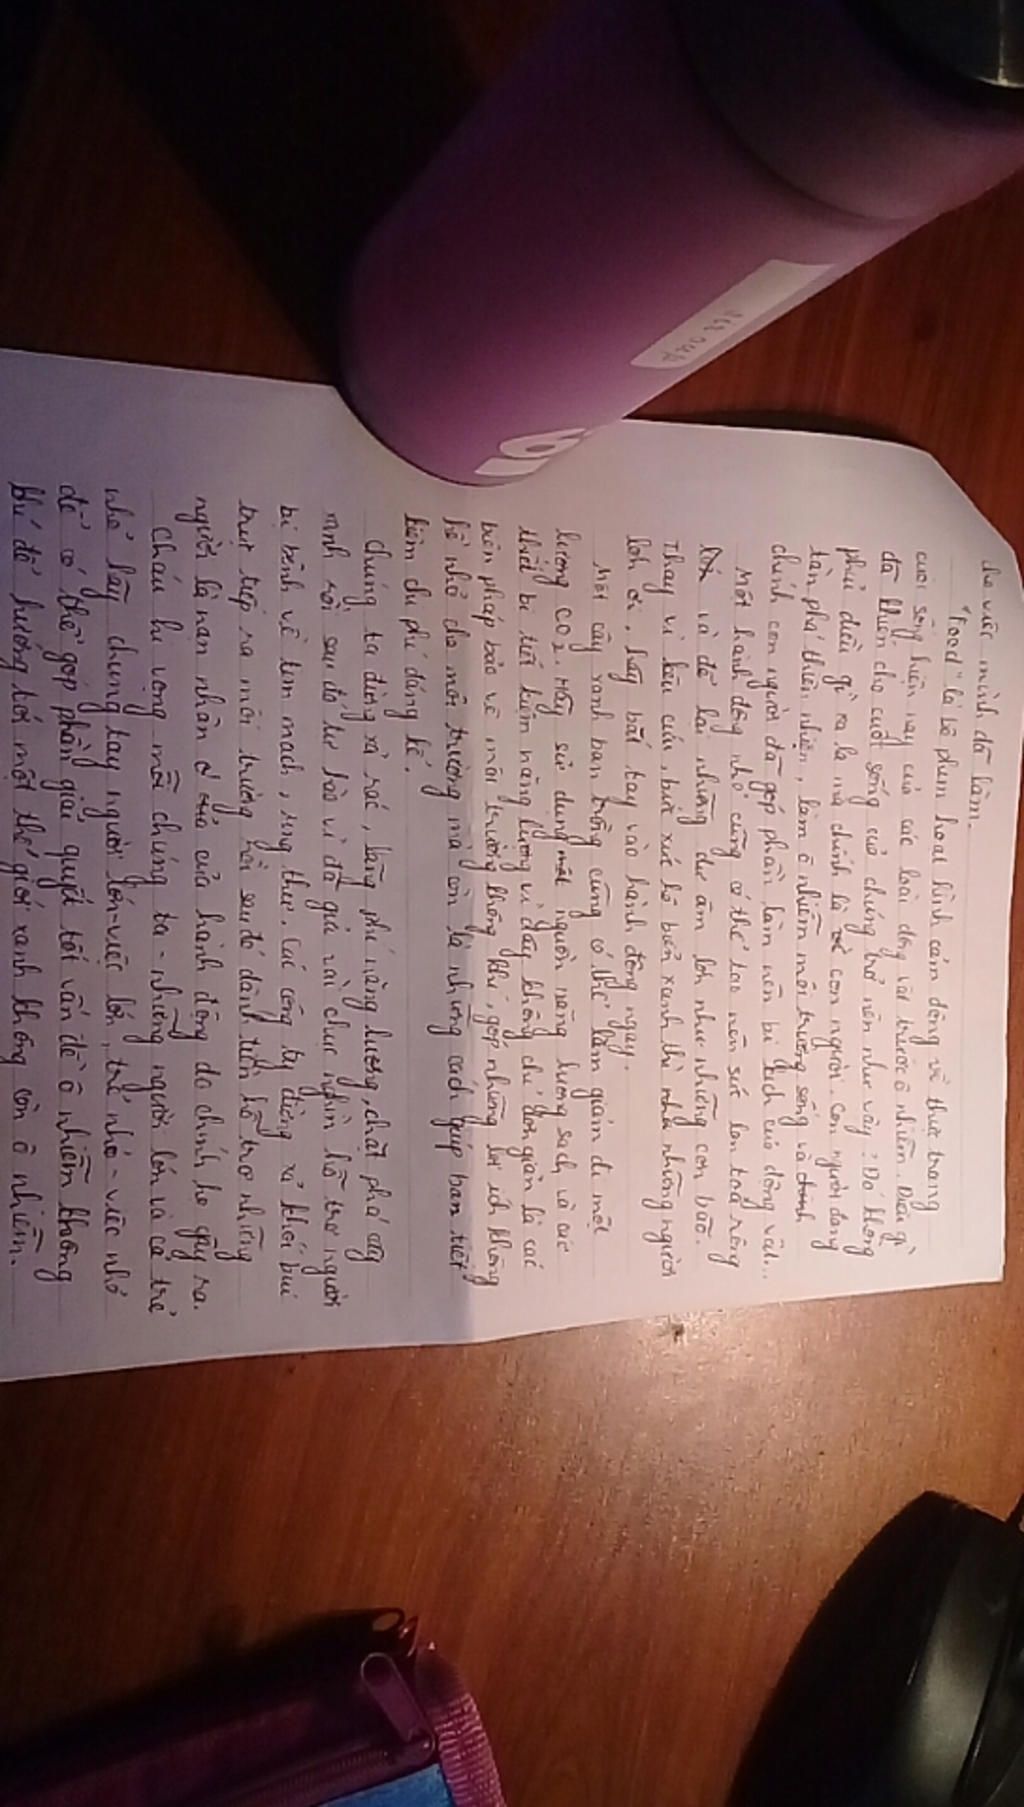 cho việc mình đã làm.
"Food" là bộ phim hoạt hình cảm động về thực trạng
cuộc sống hiện nay của các loài động vật trước ô nhiễm. Điều gì
đã khiến cho cuộc sống của chúng trở nên như vậy? Đó không
phải điều gì xa lạ mà chính là con người. Con người đang
tàn phá thiên nhiên, làm ô nhiễm môi trường sống và chính
chính con người đã góp phần làm nên bi kịch của động vật...
Một hành động nhỏ cũng có thể tạo nên sức lan toả rộng
và để lại những dư âm lớn như những cơn bão.
Thay vì kêu cứu, bức xúc hô biến xanh thì những người
lớn ơi, hãy bắt tay vào hành động ngay.
Một cây xanh bạn trồng cũng có thể làm giảm đi một
lượng CO2. Hãy sử dụng một nguồn năng lượng sạch và các
thiết bị tiết kiệm năng lượng vì đây không chỉ đơn giản là các
biện pháp bảo vệ môi trường không khí, góp những lợi ích không
hề nhỏ cho môi trường mà còn là những cách giúp bạn tiết
kiệm chi phí đáng kể.
Chúng ta đừng xả rác, lãng phí năng lượng, chặt phá cây
xanh rồi sau đó tự hào vì đã gửi vài chục nghìn hỗ trợ người
bị bệnh về tim mạch, ung thư. Các công ty đừng xả khói bụi
trực tiếp ra môi trường rồi sau đó dành tiền hỗ trợ những
người là nạn nhân của hành động do chính họ gây ra.
Cháu hi vọng mỗi chúng ta - những người lớn và cả trẻ
nhỏ hãy chung tay người lớn - việc lớn, trẻ nhỏ - việc nhỏ
để có thể góp phần giải quyết tới vấn đề ô nhiễm không
khí để hướng tới một thế giới xanh không còn ô nhiễm.